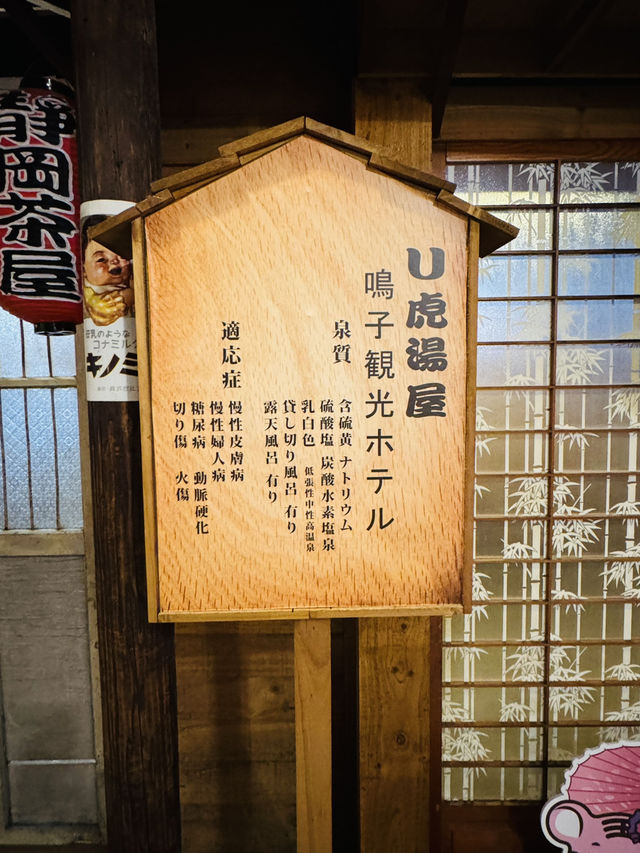 U虎湯屋
鳴子観光ホテル
泉質
含硫黄 ナトリウム
硫酸塩 炭酸水素塩泉
乳白色 低張性中性高温泉
貸し切り風呂 有り
露天風呂 有り
適応症
慢性皮膚病
慢性婦人病
糖尿病 動脈硬化
切り傷 火傷
静岡茶屋
母乳のような
コナミルク
キノミ